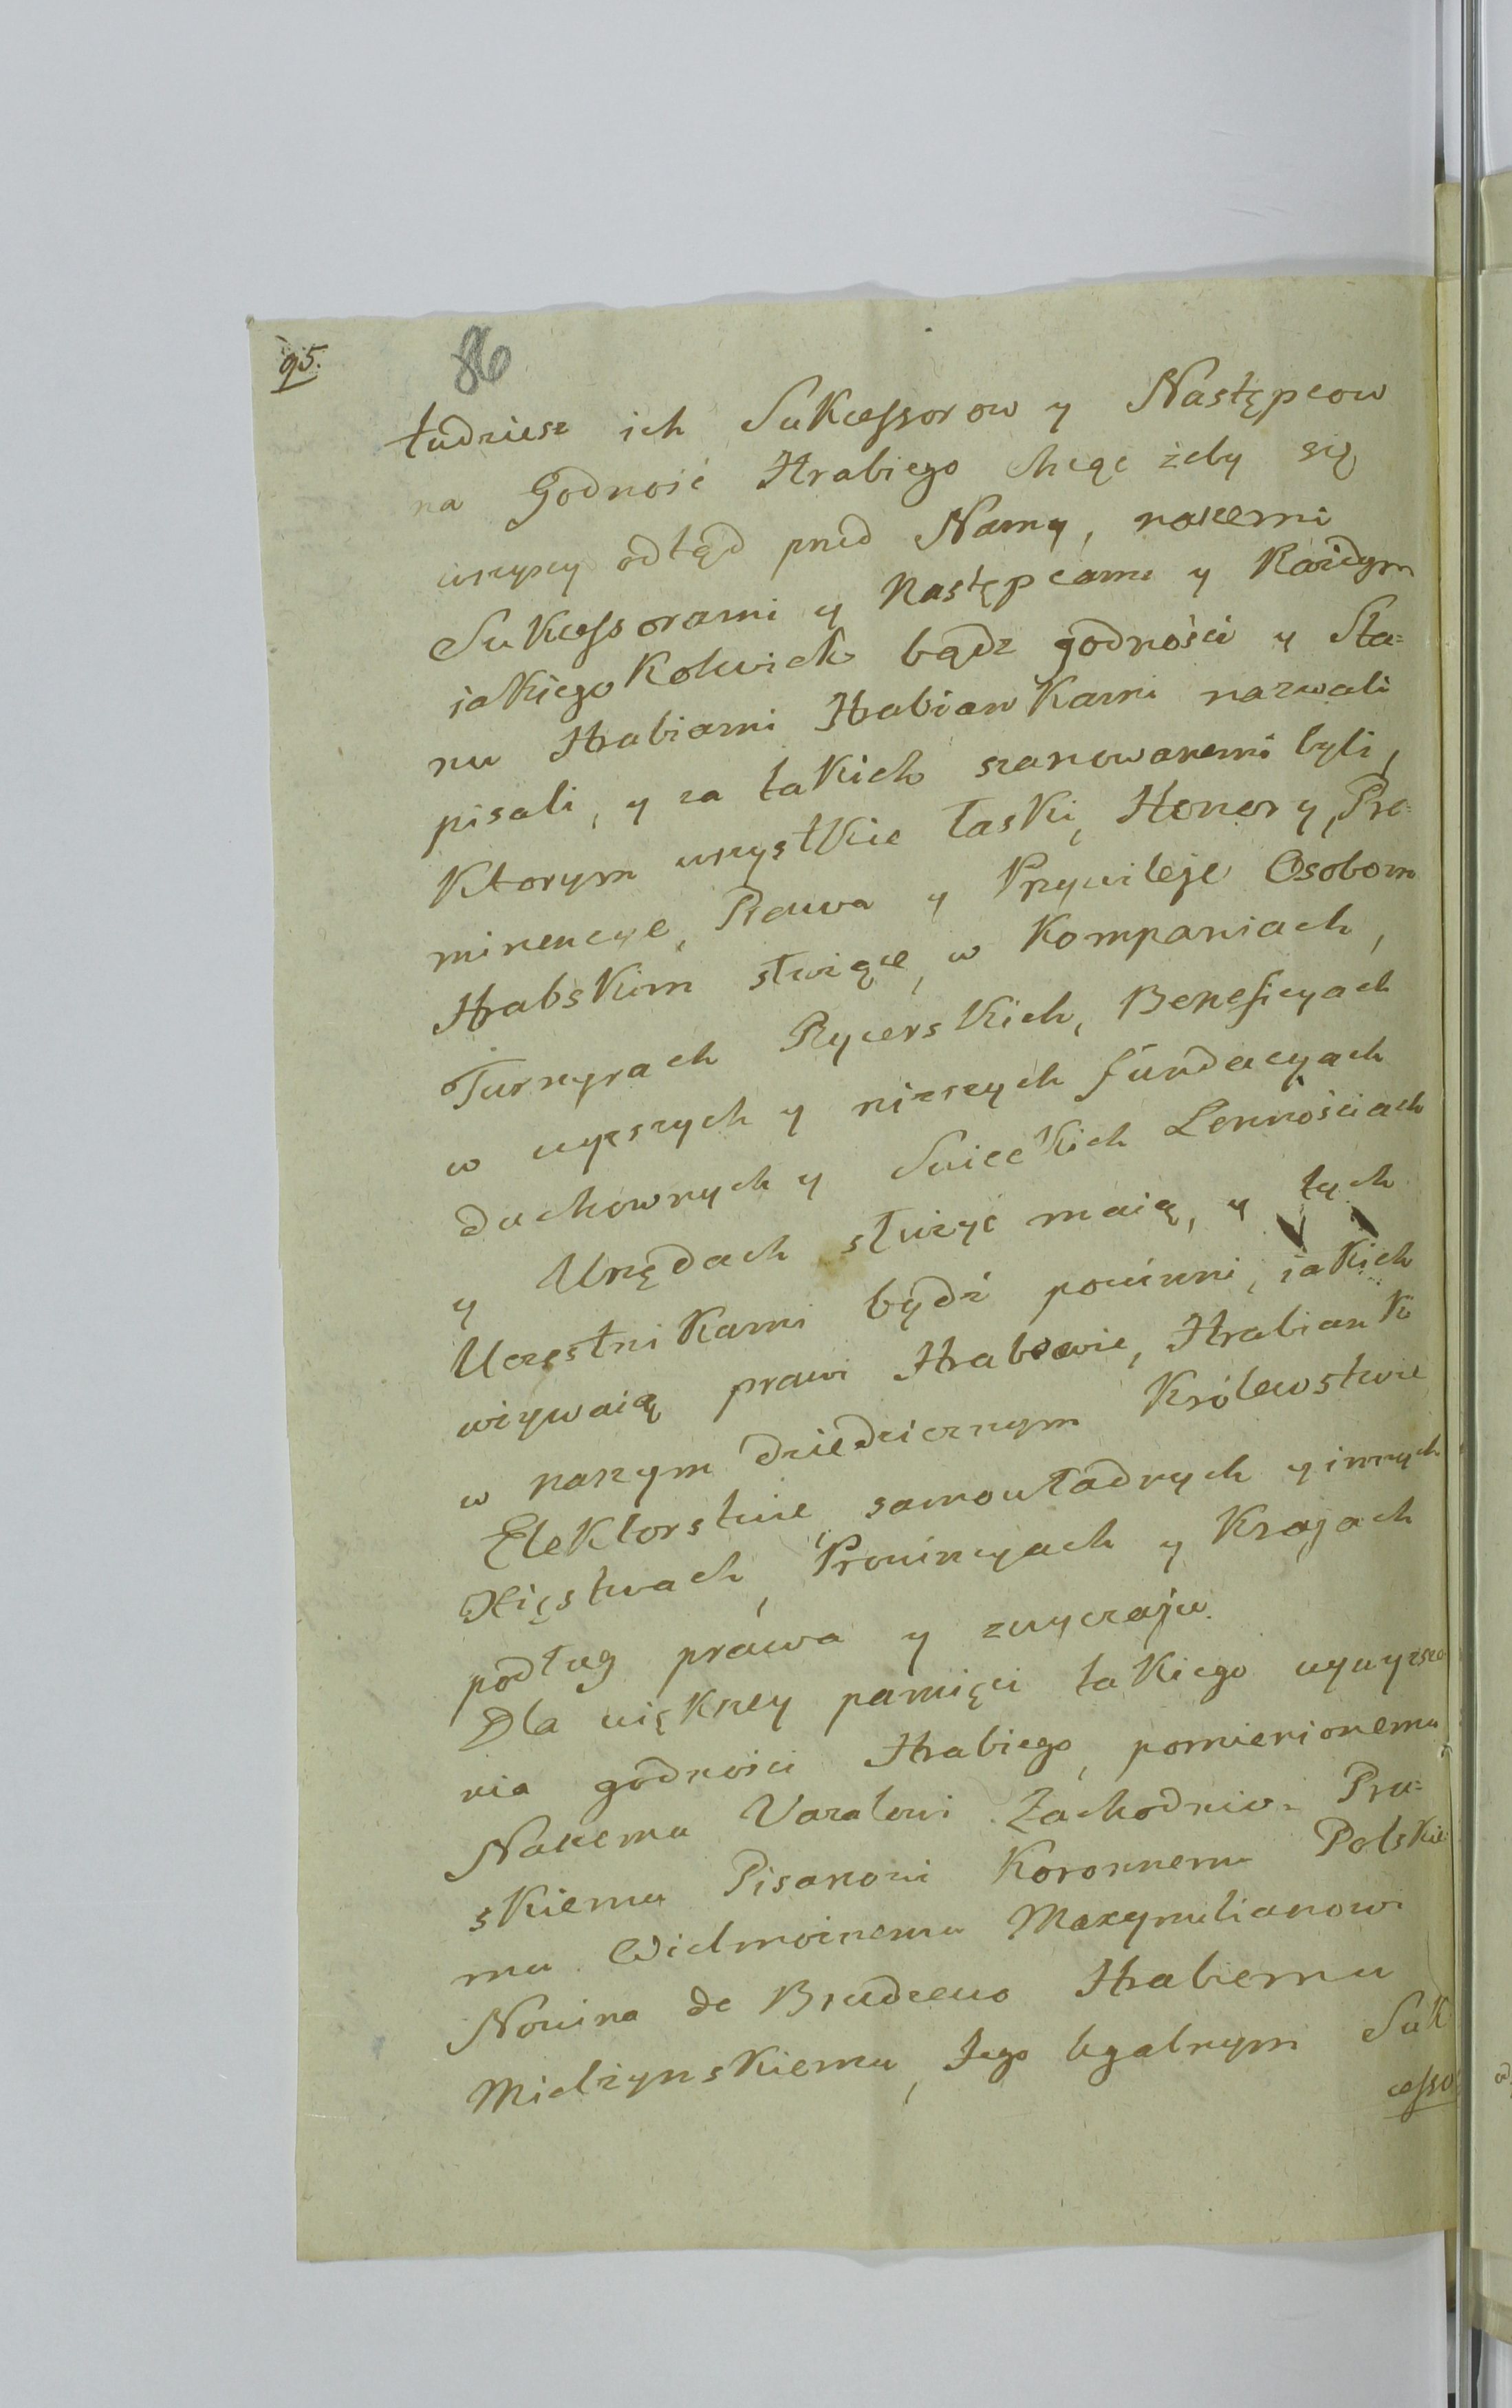 95.
86
tudziesz ich Sukcessorow y Następcow
na Godność Hrabiego chcąc żeby się
wszyscy odtąd przed Namy, naszemi
Sukcessorami y Następcami y Każdym
iakiegokolwiek bądz godności y Sta=
nu Hrabiami Hrabiankami nazwali
pisali, y za takich szanowanemi byli,
Ktorym wszystkie łaski, Honory, Pre=
minencye, Prawa y Przywileje Osobom
Hrabskim służące, w Kompaniach,
Turnyrach Rycerskich, Beneficyach
w wyższych y niższych fundacyach
duchownych y Swieckich Lennościach
y Urzędach służyć maią, y tych
Uczęstnikami bydź powinni, iakich
używaią prawi Hrabowie, Hrabianki
w naszym dziedzicznym Królewstwie
Elektorstwie, samowładnych y innych
Xięstwach, Prowincyach y Krajach
podług prawa y zwyczaju.
Dla większey pamięci takiego wywyższe
nia godności Hrabiego, pomienionemu
Naszemu Vazalowi Zachodnio= Pru=
skiemu Pisarzowi Koronnemu Polskie
mu Wielmoznemu Maxymilianowi
Nowina de Brudzewo Hrabiemu
Mielzynskiemu, Jego legalnym Suk
cesso